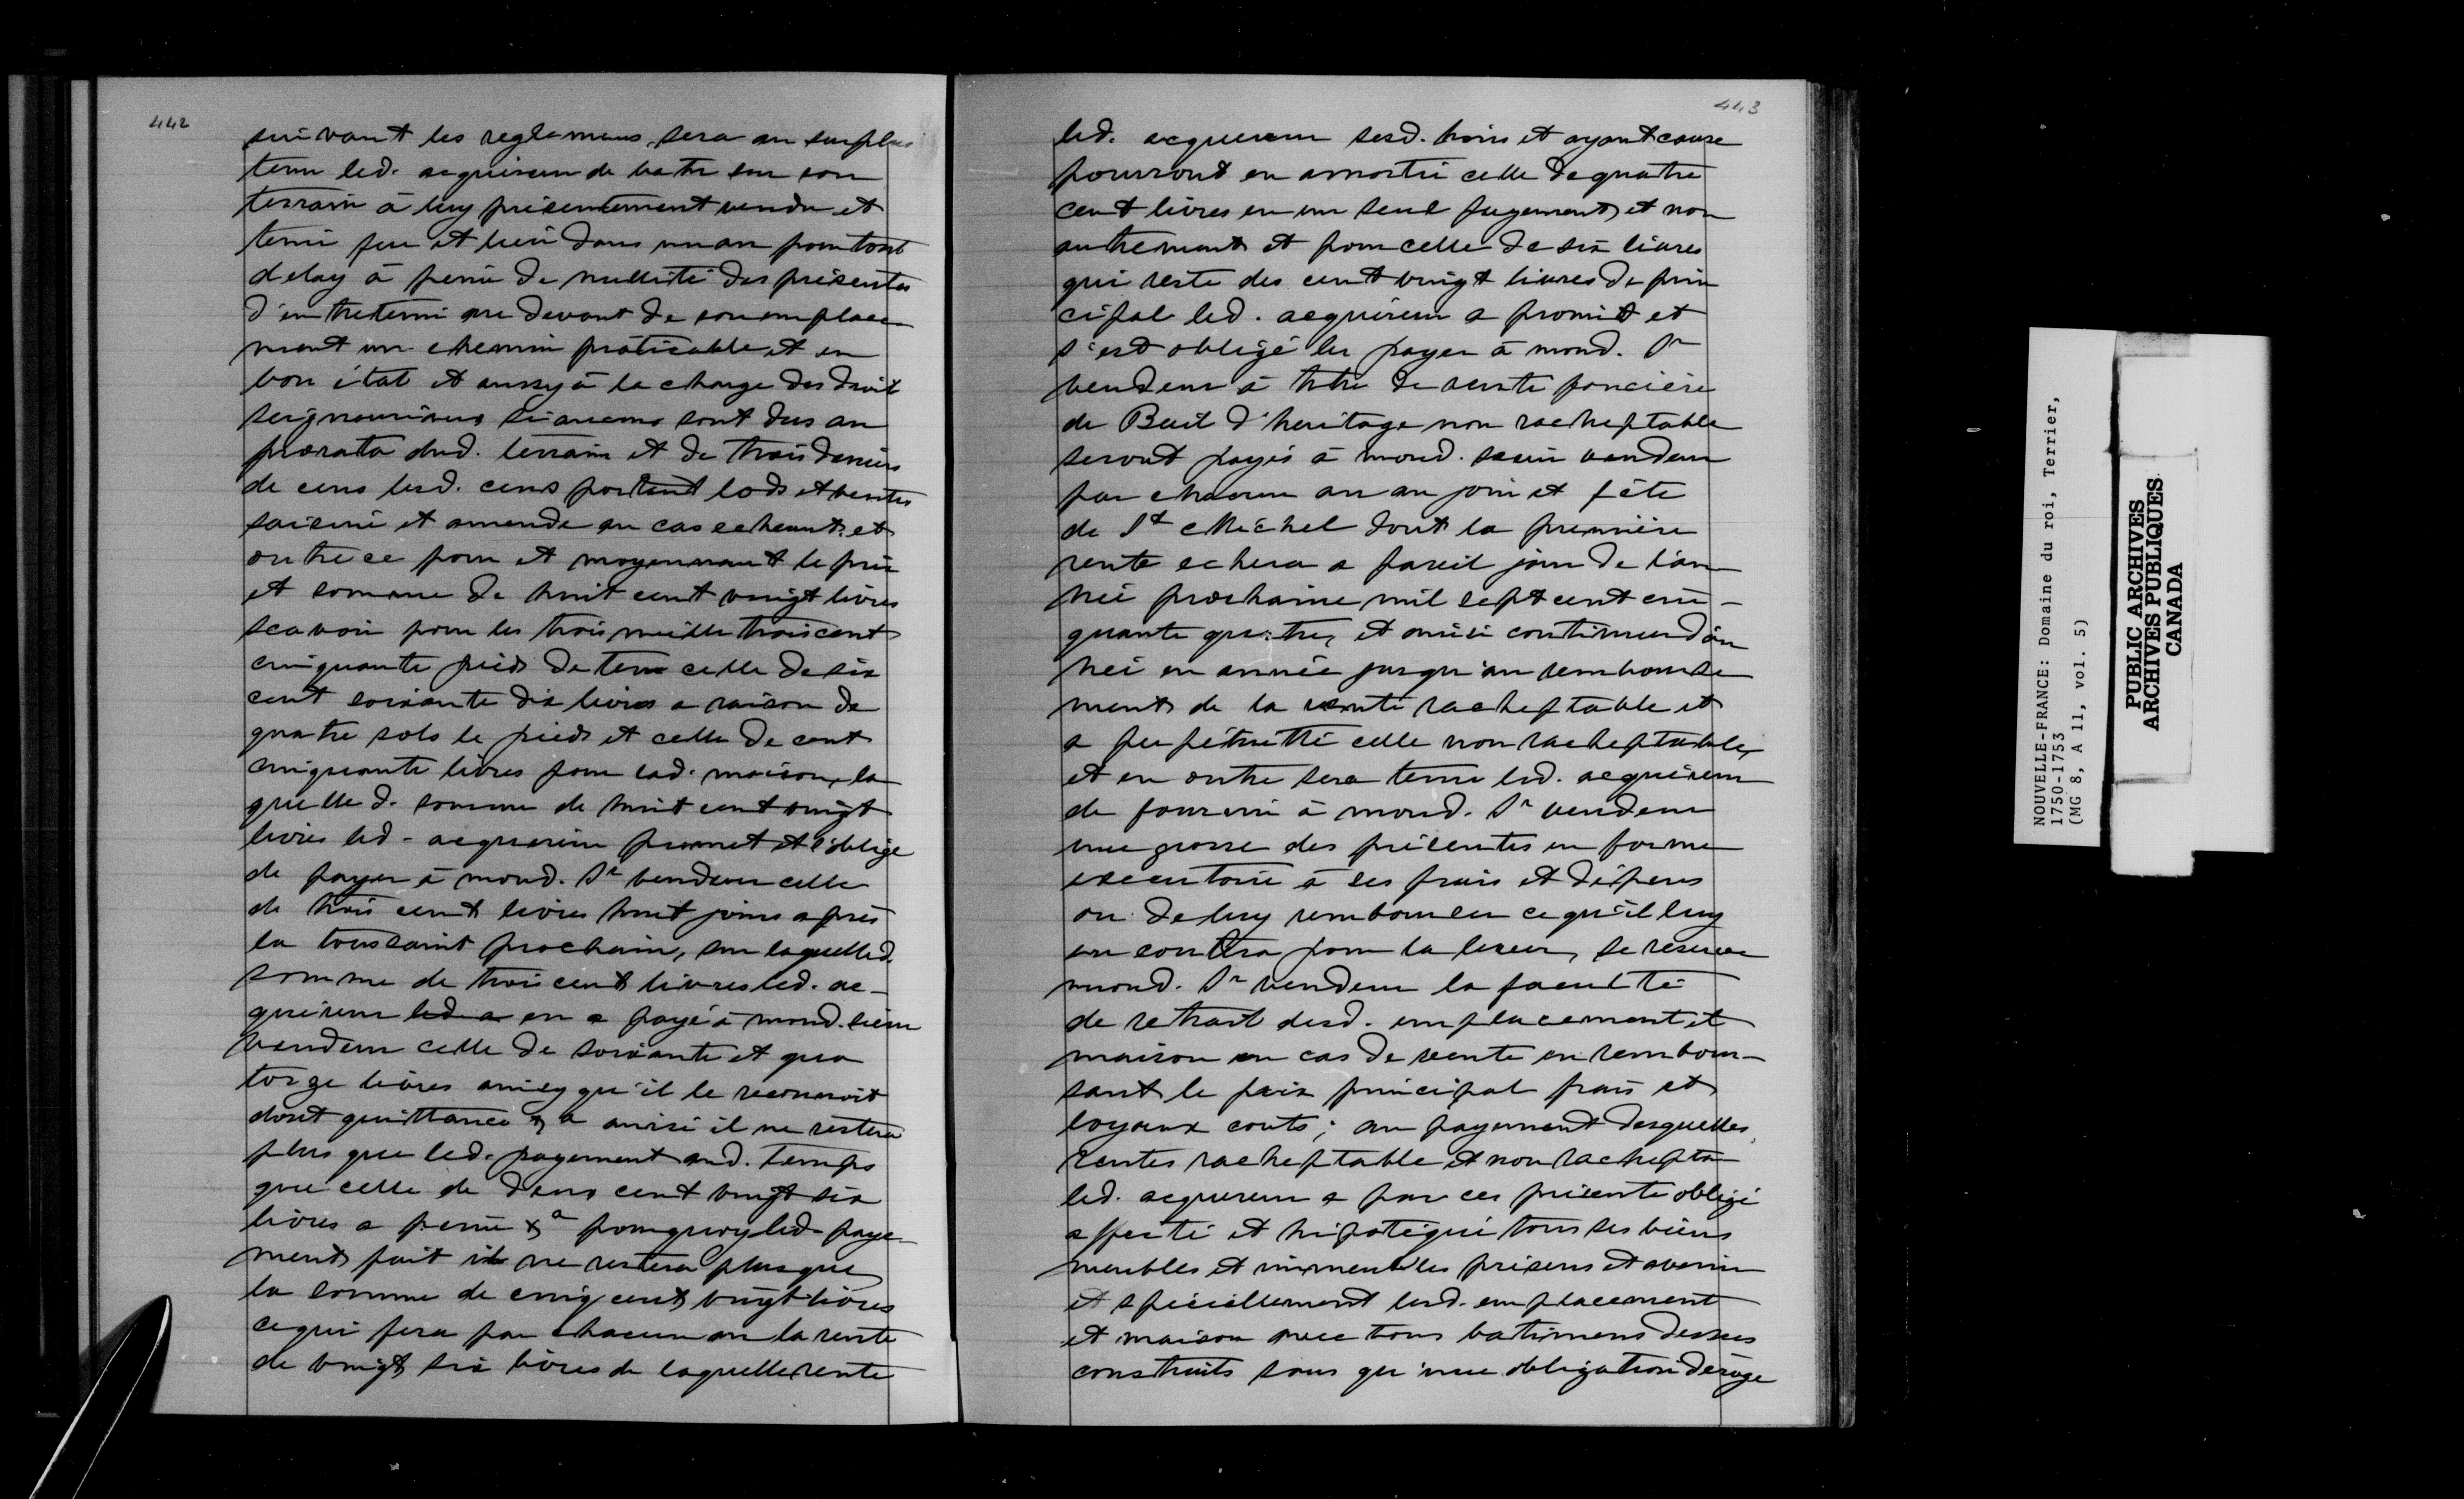 442
suivant les reglemens, sera au surplus
tenu led. acquereur de batir sur son
terrain à luy présentement vendu et
tenir feu et lieu dans un an pour tout
delay à peine de nullité des présentes
d'entretenir au devant de son emplace
ment un chemin praticable et en
bon état et aussy à la charge des droits
seigneuriaux si aucuns sont dus au
prorata dud. terrain et de trois deniers
de cens lesd. cens portant lods et ventes
saisine et amende au cas echeant, et
outre ce pour et moyennant le prix
et somme de huit cent vingt livres
scavoir pour les trois mille trois cent
cinquante pieds de terre celle de six
cent soixante dix livres a raison de
quatre sols le pieds et celle de cent
cinquante livres pour lad. maison, la
quelle d. somme de huit cent vingt
livres led. acquereur promet et s'oblige
de payer à mond. Sr vendeur celle
de trois cent livres huit jours après
la toussaint prochain, sur laquelle d.
somme de trois cent livres led. ac-
quereur led a en a payé à mond. sieur
vendeur celle de soixante et qua
torze livres ainsy qu'il le reconnoit
dont quittance &a ainsi il ne restera
plus que led. payement aud. temps
que celle de deux cent vingt six
livres a peine &a pourquoy led. paye-
ment fait il ne restera plus que
la somme de cinq cent vingt livres
ce qui fera par chacun an la rente
de vingt six livres de laquelle rente
443
led. acquereur sesd. hoirs et ayant cause
pourront en amortir celle de quatre
cent livres en un seul payement et non
autrement et pour celle de six livres
qui reste des cent vingt livres de prin
cipal led. acquéreur a promit et
s'est obligé les payer à mond. Sr
vendeur à titre de rente foncière
de Bail d'heritage non racheptable
seront payés à mond. sieur vendeur
par chacun an au jour et fête
de St Michel dont la première
rente echera a pareil jour de l'an
née prochaine mil sept cent cin-
quante quatre, et ainsi continuer d'an
née en année jusqu'au rembourse
ment de la rente racheptable et
a perpétuitté celle non racheptable,
et en outre sera tenu led. acquéreur
de fournir à mond. Sr vendeur
une grosse des présentes en forme
executoire à ses frais et dépens
ou de luy rembourser ce qu'il luy
en coutera pour la lever, se réserve
mond. Sr vendeur la faculté
de retrait desd. emplacement et
maison en cas de vente en rembour-
sant le prix principal frais et
loyaux couts; au payement desquelles
rentes racheptable et non rachepta
led. acquereur a par ces présente obligé
affecté et hipotéqué tous ses biens
meubles et immeubles présens et avenir
et spéciallement lesd. emplacement
et maison avec tous batimens dessus
construits sans qu'une obligation déroge
NOUVELLE-FRANCE: Domaine du roi, Terrier,
1750-1753
(MG 8, A 11, vol. 5)
PUBLIC ARCHIVES
ARCHIVES PUBLIQUES
CANADA